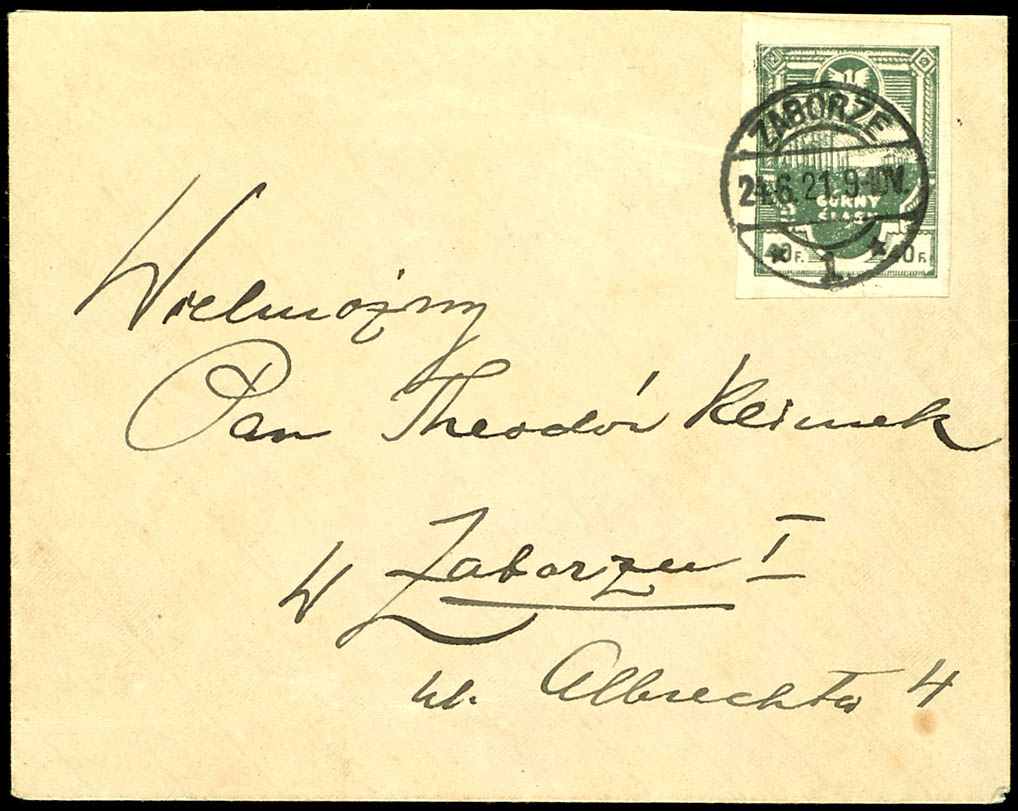 ZABORZE
21.6.21.9-10V.
* 1 *
GÓRNY
ŚLĄSK
40 F. 40 F.
Wielmożny
Pan Theodór Klimek
w Zaborzu I
ul. Albrechta 4